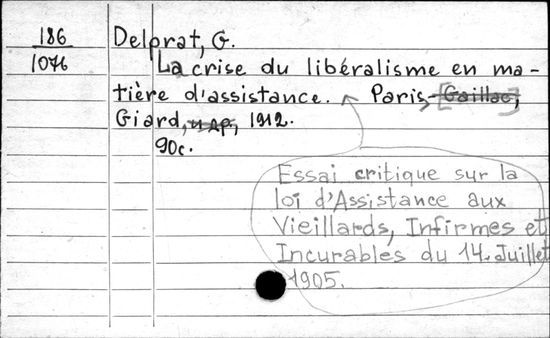 186
1076
Delprat, G.
La crise du libéralisme en ma-
tière d'assistance. Paris, [Gaillac],
Giard, 1912.
90c.
Essai critique sur la
loi d'Assistance aux
Vieillards, Infirmes et
Incurables du 14 Juillet
1905.